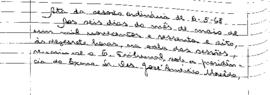 Ata da sessão ordinária de 6-5-68.
Aos seis dias do mês de maio de
um mil novecentos e sessenta e oito,
às dezessete horas, na sala das sessões,
reuniu-se o E. Tribunal, sob a presidên-
cia do Exmo. Sr. Des. José Américo